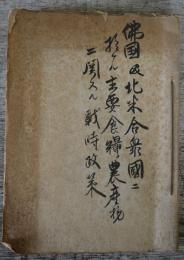 佛國及北米合衆國ニ
於ケル主要食糧農産物
ニ関スル戦時政策